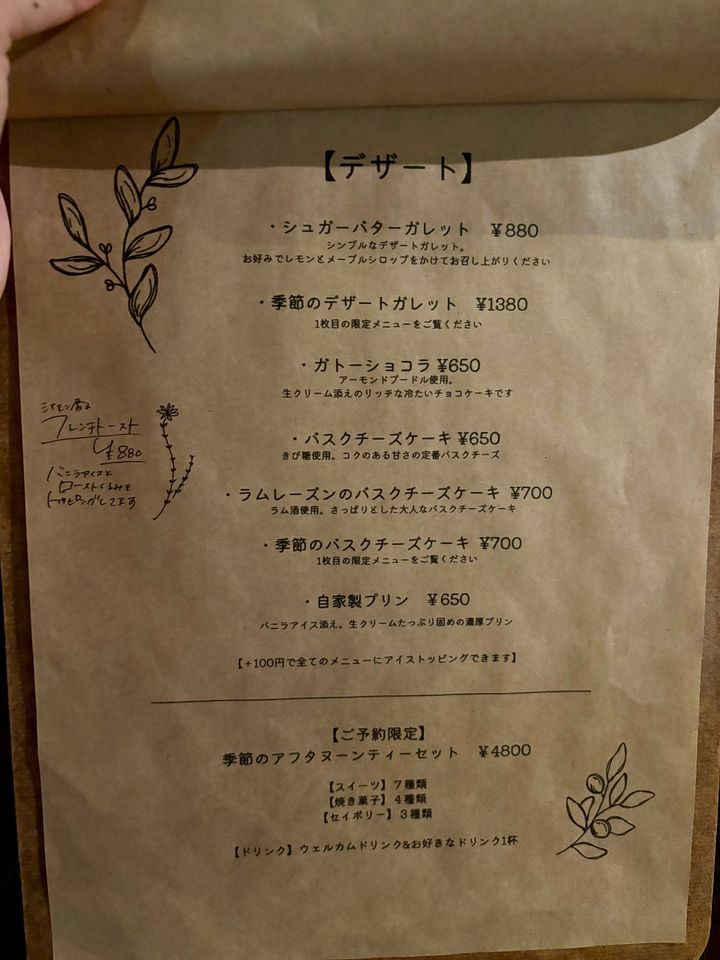 【デザート】
・シュガーバターガレット ¥880
シンプルなデザートガレット。
お好みでレモンとメープルシロップをかけてお召し上がりください
・季節のデザートガレット ¥1380
1枚目の限定メニューをご覧ください
・ガトーショコラ ¥650
アーモンドプードル使用。
生クリーム添えのリッチな冷たいチョコケーキです
シナモン香る
フレンチトースト
¥880
バニラアイスと
ローストくるみを
トッピングしてます
・バスクチーズケーキ ¥650
きび糖使用。コクのある甘さの定番バスクチーズ
・ラムレーズンのバスクチーズケーキ ¥700
ラム酒使用。さっぱりとした大人なバスクチーズケーキ
・季節のバスクチーズケーキ ¥700
1枚目の限定メニューをご覧ください
・自家製プリン ¥650
バニラアイス添え。生クリームたっぷり固めの濃厚プリン
【+100円で全てのメニューにアイストッピングできます】
【ご予約限定】
季節のアフタヌーンティーセット ¥4800
【スイーツ】7種類
【焼き菓子】4種類
【セイボリー】3種類
【ドリンク】ウェルカムドリンク&お好きなドリンク1杯